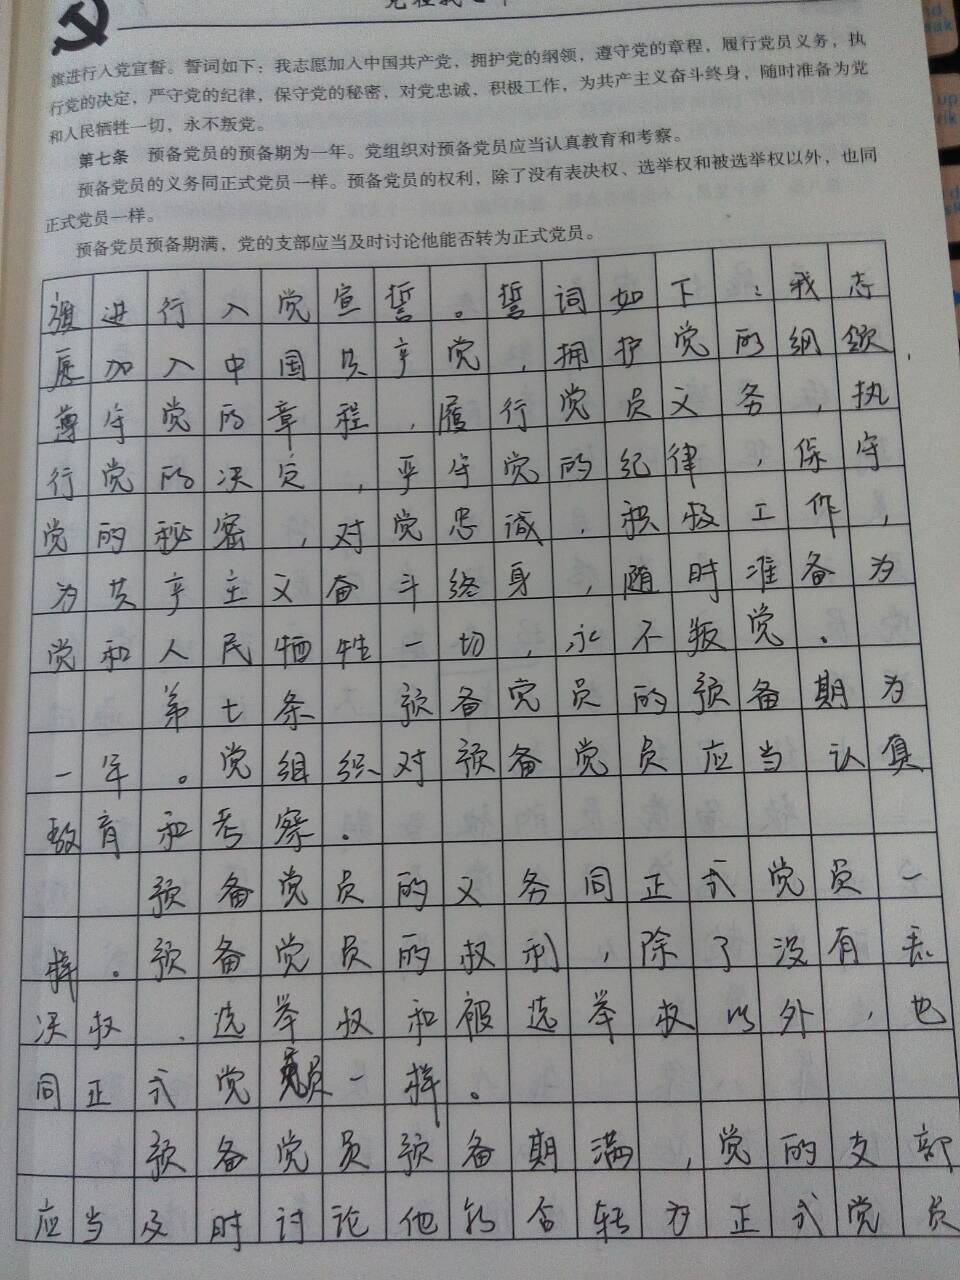 旗进行入党宣誓。誓词如下：我志愿加入中国共产党，拥护党的纲领，遵守党的章程，履行党员义务，执
行党的决定，严守党的纪律，保守党的秘密，对党忠诚，积极工作，为共产主义奋斗终身，随时准备为党
和人民牺牲一切，永不叛党。
第七条 预备党员的预备期为一年。党组织对预备党员应当认真教育和考察。
预备党员的义务同正式党员一样。预备党员的权利，除了没有表决权、选举权和被选举权以外，也同
正式党员一样。
预备党员预备期满，党的支部应当及时讨论他能否转为正式党员。
旗进行入党宣誓。誓词如下：我志
愿加入中国共产党，拥护党的纲领，
遵守党的章程，履行党员义务，执
行党的决定，严守党的纪律，保守
党的秘密，对党忠诚，积极工作，
为共产主义奋斗终身，随时准备为
党和人民牺牲一切，永不叛党。
第七条 预备党员的预备期为
一年。党组织对预备党员应当认真
教育和考察。
预备党员的义务同正式党员一
样。预备党员的权利，除了没有表
决权、选举权和被选举权以外，也
同正式党员一样。
预备党员预备期满，党的支部
应当及时讨论他能否转为正式党员